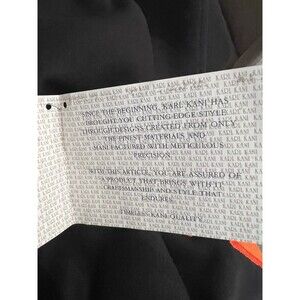 SINCE THE BEGINNING, KARL KANI HAS
BROUGHT YOU CUTTING-EDGE STYLE
THROUGH DESIGNS CREATED FROM ONLY
THE FINEST MATERIALS AND
MANUFACTURED WITH METICULOUS
PRECISION.
WITH THIS ARTICLE, YOU ARE ASSURED OF
A PRODUCT THAT BRINGS WITH IT
CRAFTSMANSHIP AND STYLE THAT
ENDURES.
TIMELESS KANI QUALITY.